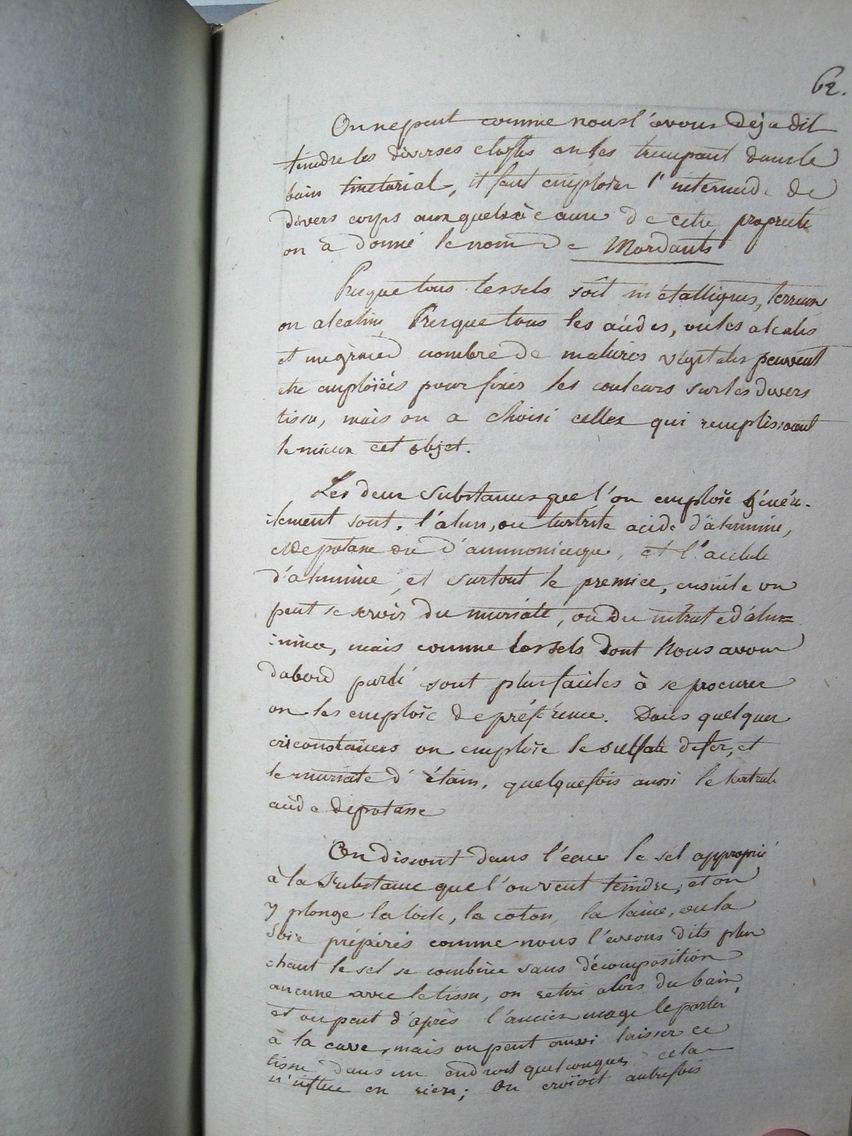 62.
On ne peut comme nous l'avons deja dit
teindre les diverses etoffes en les trempant dans le
bain tinctorial, it faut emploier l'intermede de
divers corps auxquels à cause de cette propriete
on a donné le nom de Mordants
Presque tous les sels soit métalliques, terreux
ou alcalins, Presque tous les acides, ou les alcalis
et un grand nombre de matieres végetales peuvent
etre emploiées pour fixer les couleurs sur les divers
tissu, mais on a choisi celles qui remplissent
le mieux cet objet.
Les deux substances que l'on emploïe généra-
lement sont, l'alun, ou acide d'alumine,
et de potasse ou d'ammoniaque, et l'acetate
d'alumine, et surtout le premier, ensuite on
peut se servir du muriate, ou du nitrate d'alu=
:mine, mais comme les sels dont Nous avons
dabord parlé sont plus faciles à se procurer
on les emploïe de préférence. Dans quelques
circonstances on emploïe le sulfate de fer, et
le muriate d'étain, quelquefois aussi le tartrate
acide de potasse
On dissout dans l'eau le sel approprié
à la substance que l'on veut teindre, et on
y plonge la toile, le coton, la laine, ou la
soie préparés comme nous l'avons dits plus
:haut le sel se combine sans décomposition
aucune avec le tissu, on retire alors du bain,
et on peut d'après l'ancien usage le porter
à la cave, mais on peut aussi laisser ce
tissu dans un endroit quelconque, cela
n'influe en rien; On croïoit autrefois